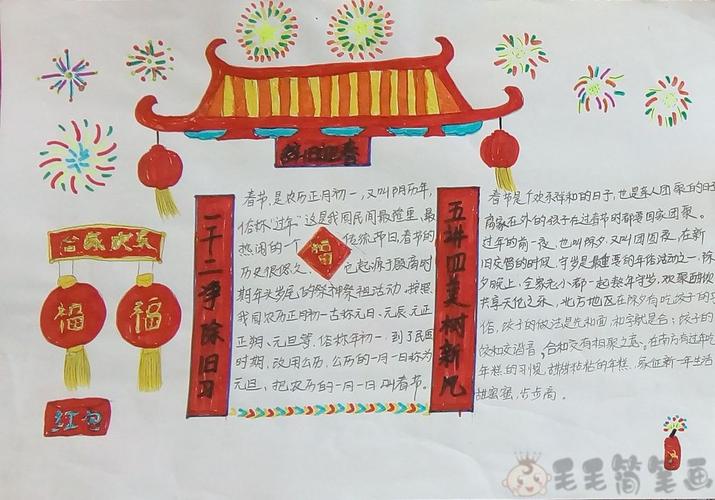 辞旧迎春
一干二净除旧习
五讲四美树新风
合家欢乐
福
福
红包
福
春节,是农历正月初一,又叫阴历年,
俗称“过年”这是我国民间最隆重、最
热闹的一个传统节日。春节的
历史很悠久,它起源于殷商时
期年头岁尾的祭神祭祖活动。按照
我国农历正月初一古称元日、元辰、元正
正朔、元旦等,俗称年初一,到了民国
时期,改用公历,公历的一月一日称为
元旦,把农历的一月一日叫春节。
春节是个欢乐祥和的日子,也是亲人团聚的日子
离家在外的孩子在过春节时都要回家团聚。
过年的前一夜,也叫除夕,又叫团圆夜,在新
旧交替的时候,守岁是最重要的年俗活动之一,除
夕晚上,全家老小都一起熬年守岁,欢聚酣饮
共享天伦之乐,北方地区在除夕有吃饺子的习
俗,饺子的做法是先和面,和字就是合;饺子的
饺和交谐音,合和交有相聚之意。在南方有过年吃
年糕的习惯,甜甜粘粘的年糕,象征新一年生活
甜蜜蜜,步步高。
毛毛简笔画